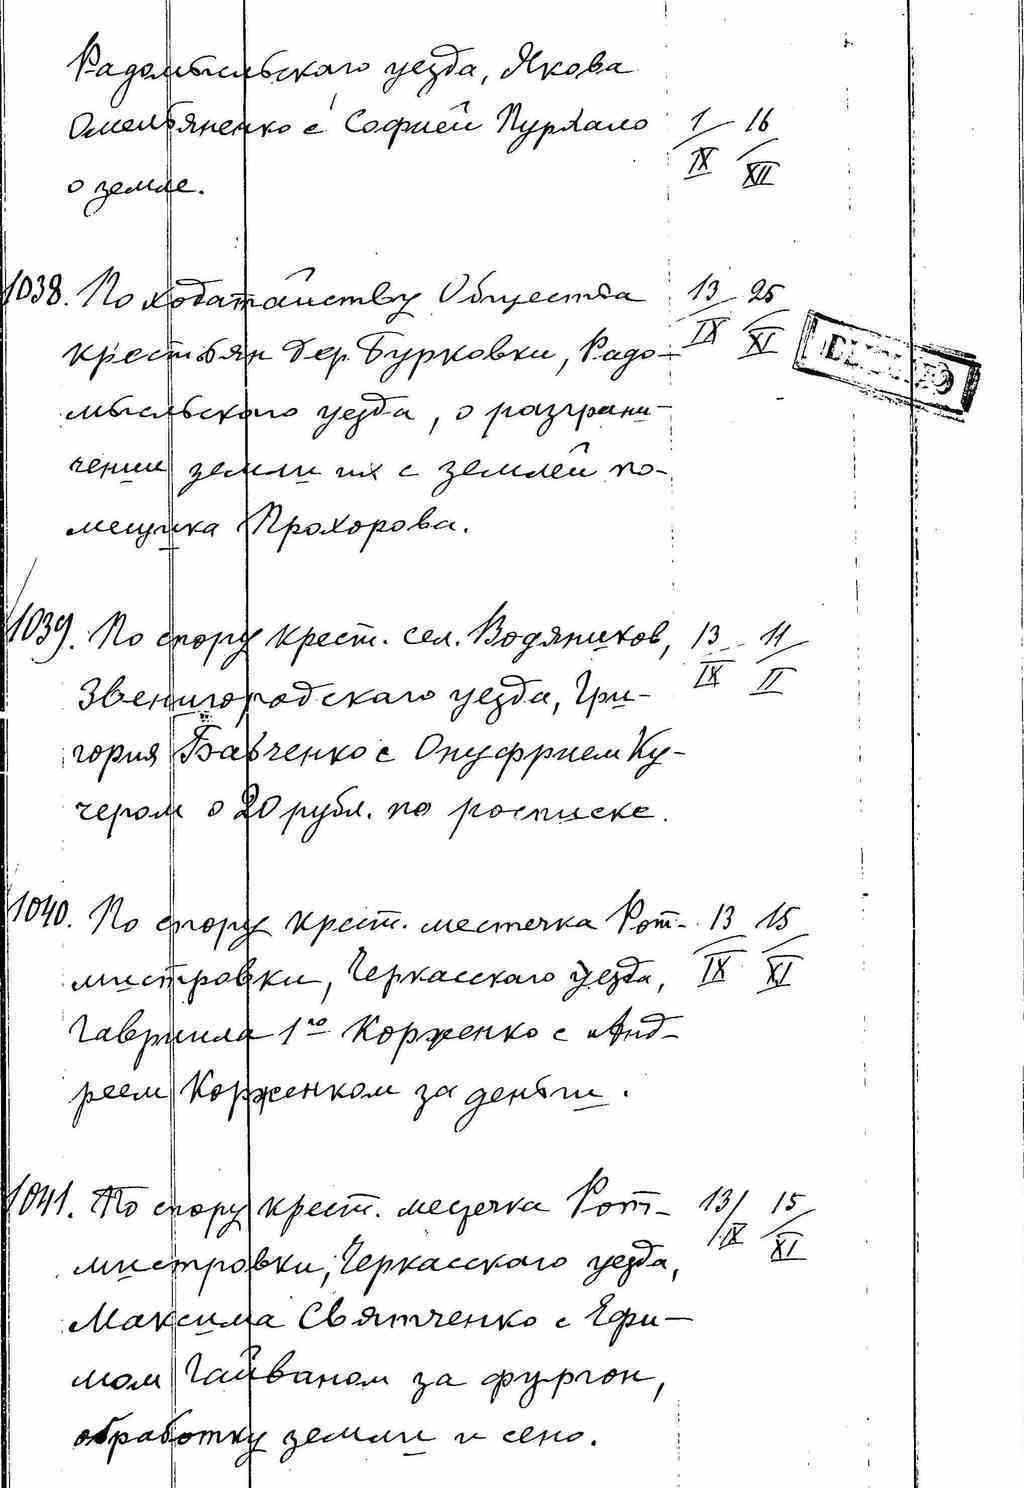 Радомысльскаго уезда, Якова
Омельяненко с Софией Пурхало 1/IX 16/XII
о земле.
1038. По ходатайству Общества 13/IX 25/XI
крестьян дер. Бурковки, Радо-
мысльского уезда, о разграни-
чении земли их с землей по-
мещика Прохорова.
1039. По спору крест. сел. Водяников, 13/IX 11/II
Звенигородскаго уезда, Гри-
гория Бавченко с Онуфрием Ку-
чером о 20 рубл. по росписке.
1040. По спору крест. местечка Рот- 13/IX 15/XI
мистровки, Черкасскаго уезда,
Гавриила 1го Корженко с Анд-
реем Корженком за деньги.
1041. По спору крест. месечка Рот- 13/IX 15/XI
мистровки, Черкасского уезда,
Максима Святченко с Ефи-
мом Гайваном за фургон,
обработку земли и сено.